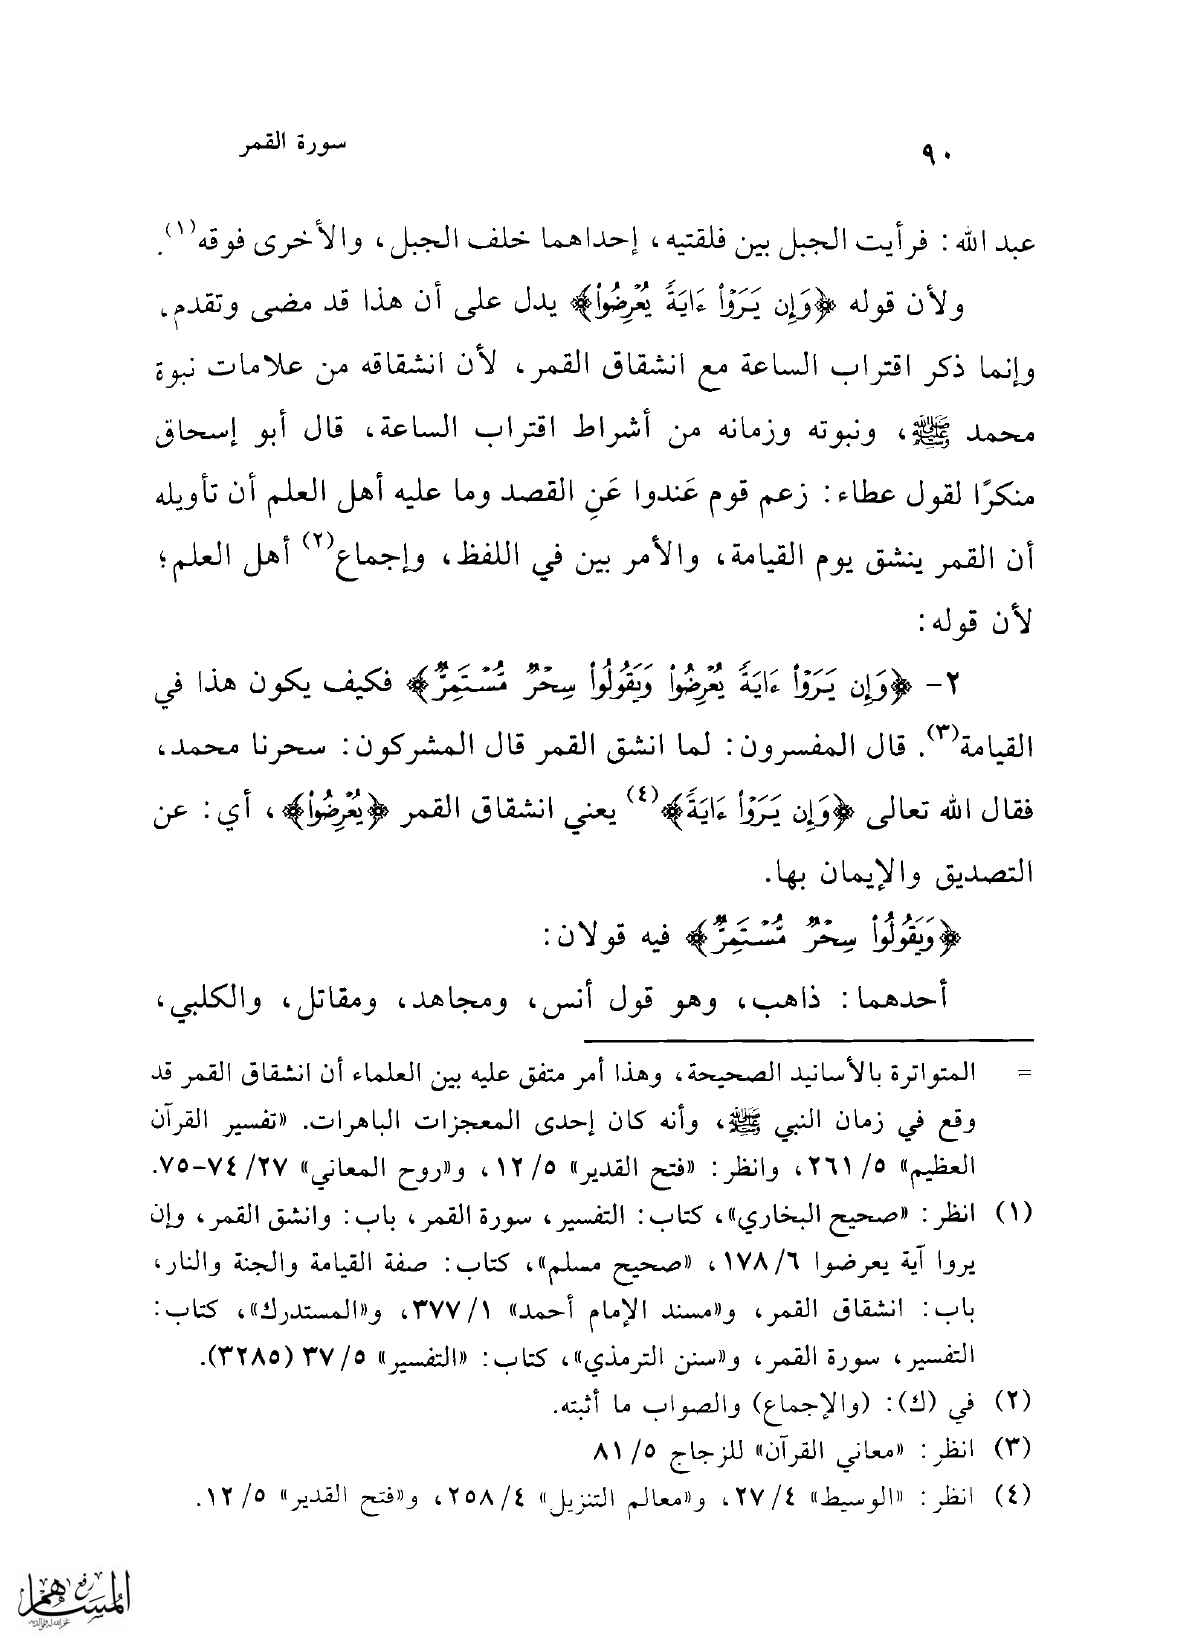 ٩٠ سورة القمر
عبد الله: فرأيت الجبل بين فلقتيه، إحداهما خلف الجبل، والأخرى فوقه(١).
ولأن قوله ﴿وَإِن يَرَوْا۟ ءَايَةً يُعْرِضُوا۟﴾ يدل على أن هذا قد مضى وتقدم،
وإنما ذكر اقتراب الساعة مع انشقاق القمر، لأن انشقاقه من علامات نبوة
محمد ﷺ، ونبوته وزمانه من أشراط اقتراب الساعة، قال أبو إسحاق
منكرًا لقول عطاء: زعم قوم عَندوا عَنِ القصد وما عليه أهل العلم أن تأويله
أن القمر ينشق يوم القيامة، والأمر بين في اللفظ، وإجماع(٢) أهل العلم؛
لأن قوله:
٢- ﴿وَإِن يَرَوْا۟ ءَايَةً يُعْرِضُوا۟ وَيَقُولُوا۟ سِحْرٌ مُّسْتَمِرٌّ﴾ فكيف يكون هذا في
القيامة(٣). قال المفسرون: لما انشق القمر قال المشركون: سحرنا محمد،
فقال الله تعالى ﴿وَإِن يَرَوْا۟ ءَايَةً﴾(٤) يعني انشقاق القمر ﴿يُعْرِضُوا۟﴾، أي: عن
التصديق والإيمان بها.
﴿وَيَقُولُوا۟ سِحْرٌ مُّسْتَمِرٌّ﴾ فيه قولان:
أحدهما: ذاهب، وهو قول أنس، ومجاهد، ومقاتل، والكلبي،
= المتواترة بالأسانيد الصحيحة، وهذا أمر متفق عليه بين العلماء أن انشقاق القمر قد
وقع في زمان النبي ﷺ، وأنه كان إحدى المعجزات الباهرات. «تفسير القرآن
العظيم» ٥/ ٢٦١، وانظر: «فتح القدير» ٥/ ١٢، و«روح المعاني» ٢٧/ ٧٤-٧٥.
(١) انظر: «صحيح البخاري»، كتاب: التفسير، سورة القمر، باب: وانشق القمر، وإن
يروا آية يعرضوا ٦/ ١٧٨، «صحيح مسلم»، كتاب: صفة القيامة والجنة والنار،
باب: انشقاق القمر، و«مسند الإمام أحمد» ١/ ٣٧٧، و«المستدرك»، كتاب:
التفسير، سورة القمر، و«سنن الترمذي»، كتاب: «التفسير» ٥/ ٣٧ (٣٢٨٥).
(٢) في (ك): (والإجماع) والصواب ما أثبته.
(٣) انظر: «معاني القرآن» للزجاج ٥/ ٨١
(٤) انظر: «الوسيط» ٤/ ٢٧، و«معالم التنزيل» ٤/ ٢٥٨، و«فتح القدير» ٥/ ١٢.